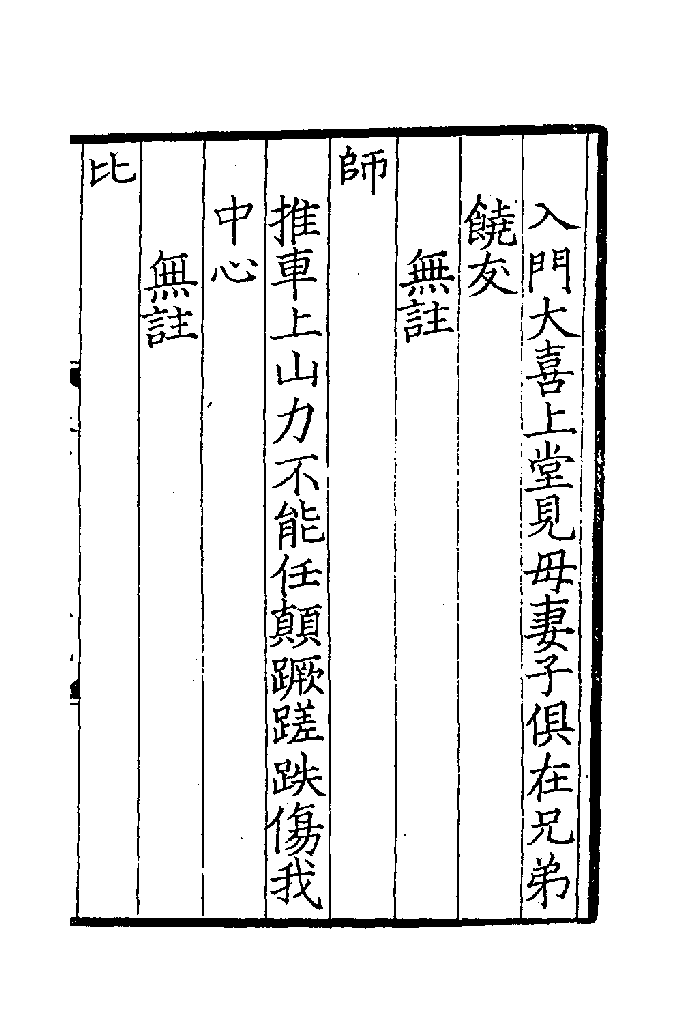 入門大喜上堂見母妻子俱在兄弟
饒友
無註
師
推車上山力不能任顛蹶蹉跌傷我
中心
無註
比